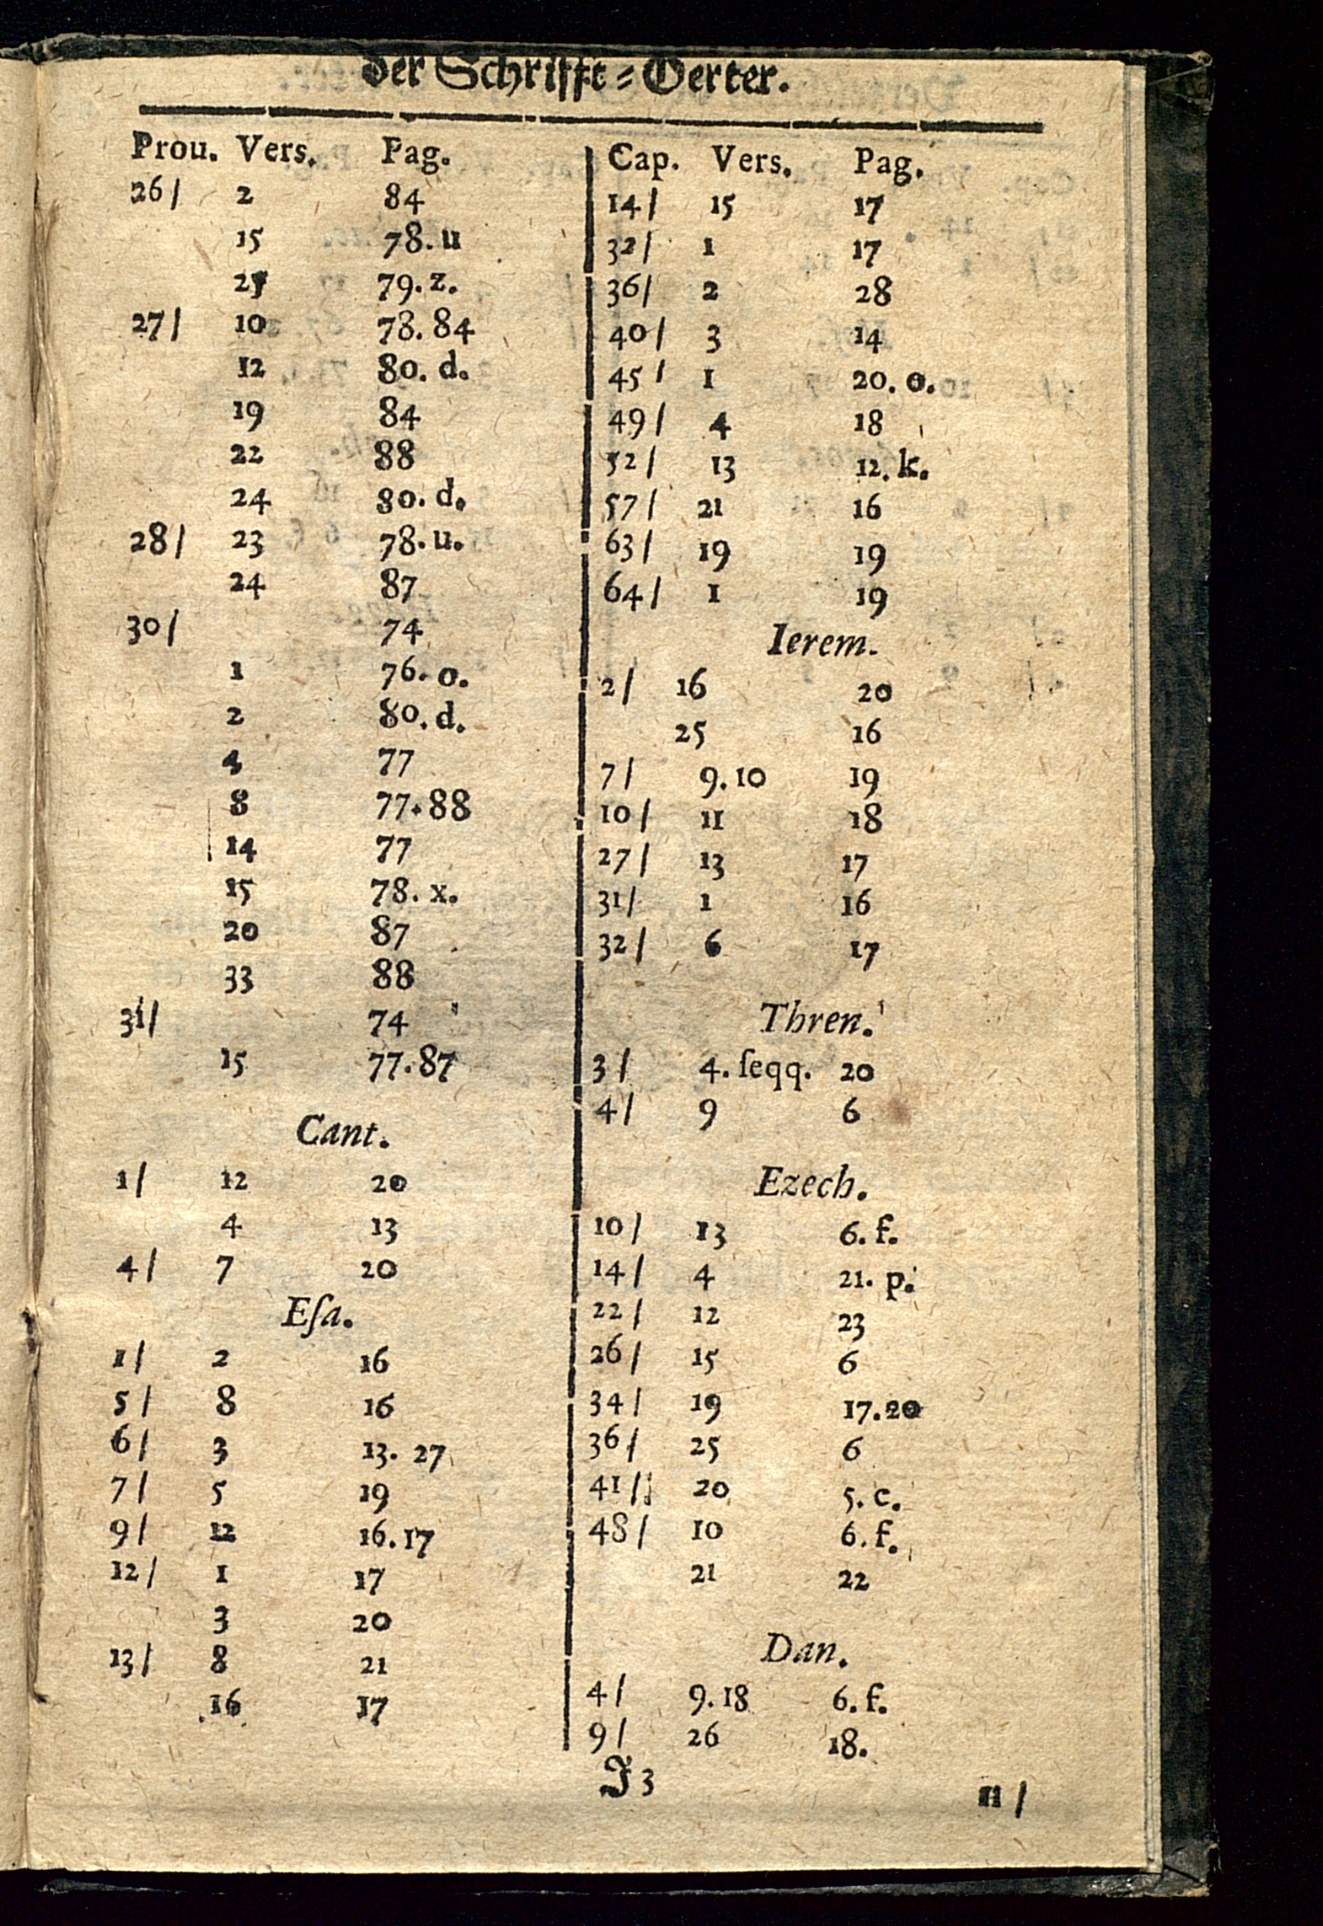 der Schrifft-Oerter.
Prou. Vers. Pag.
26/ 2 84
15 78.u
27 79.z.
27/ 10 78.84
12 80.d.
19 84
22 88
24 80.d.
28/ 23 78.u.
24 87
30/ 74
1 76.o.
2 80.d.
4 77
8 77.88
14 77
15 78.x.
20 87
33 88
31/ 74
15 77.87
Cant.
1/ 12 20
4 13
4/ 7 20
Eſa.
1/ 2 16
5/ 8 16
6/ 3 13. 27
7/ 5 19
9/ 12 16.17
12/ 1 17
3 20
13/ 8 21
16 17
Cap. Vers. Pag.
14/ 15 17
32/ 1 17
36/ 2 28
40/ 3 14
45/ 1 20.o.
49/ 4 18
52/ 13 12.k.
57/ 21 16
63/ 19 19
64/ 1 19
Ierem.
2/ 16 20
25 16
7/ 9.10 19
10/ 11 18
27/ 13 17
31/ 1 16
32/ 6 17
Thren.
3/ 4.ſeqq. 20
4/ 9 6
Ezech.
10/ 13 6.f.
14/ 4 21.p.
22/ 12 23
26/ 15 6
34/ 19 17.20
36/ 25 6
41/ 20 5.c.
48/ 10 6.f.
21 22
Dan.
4/ 9.18 6.f.
9/ 26 18.
J 3
11/